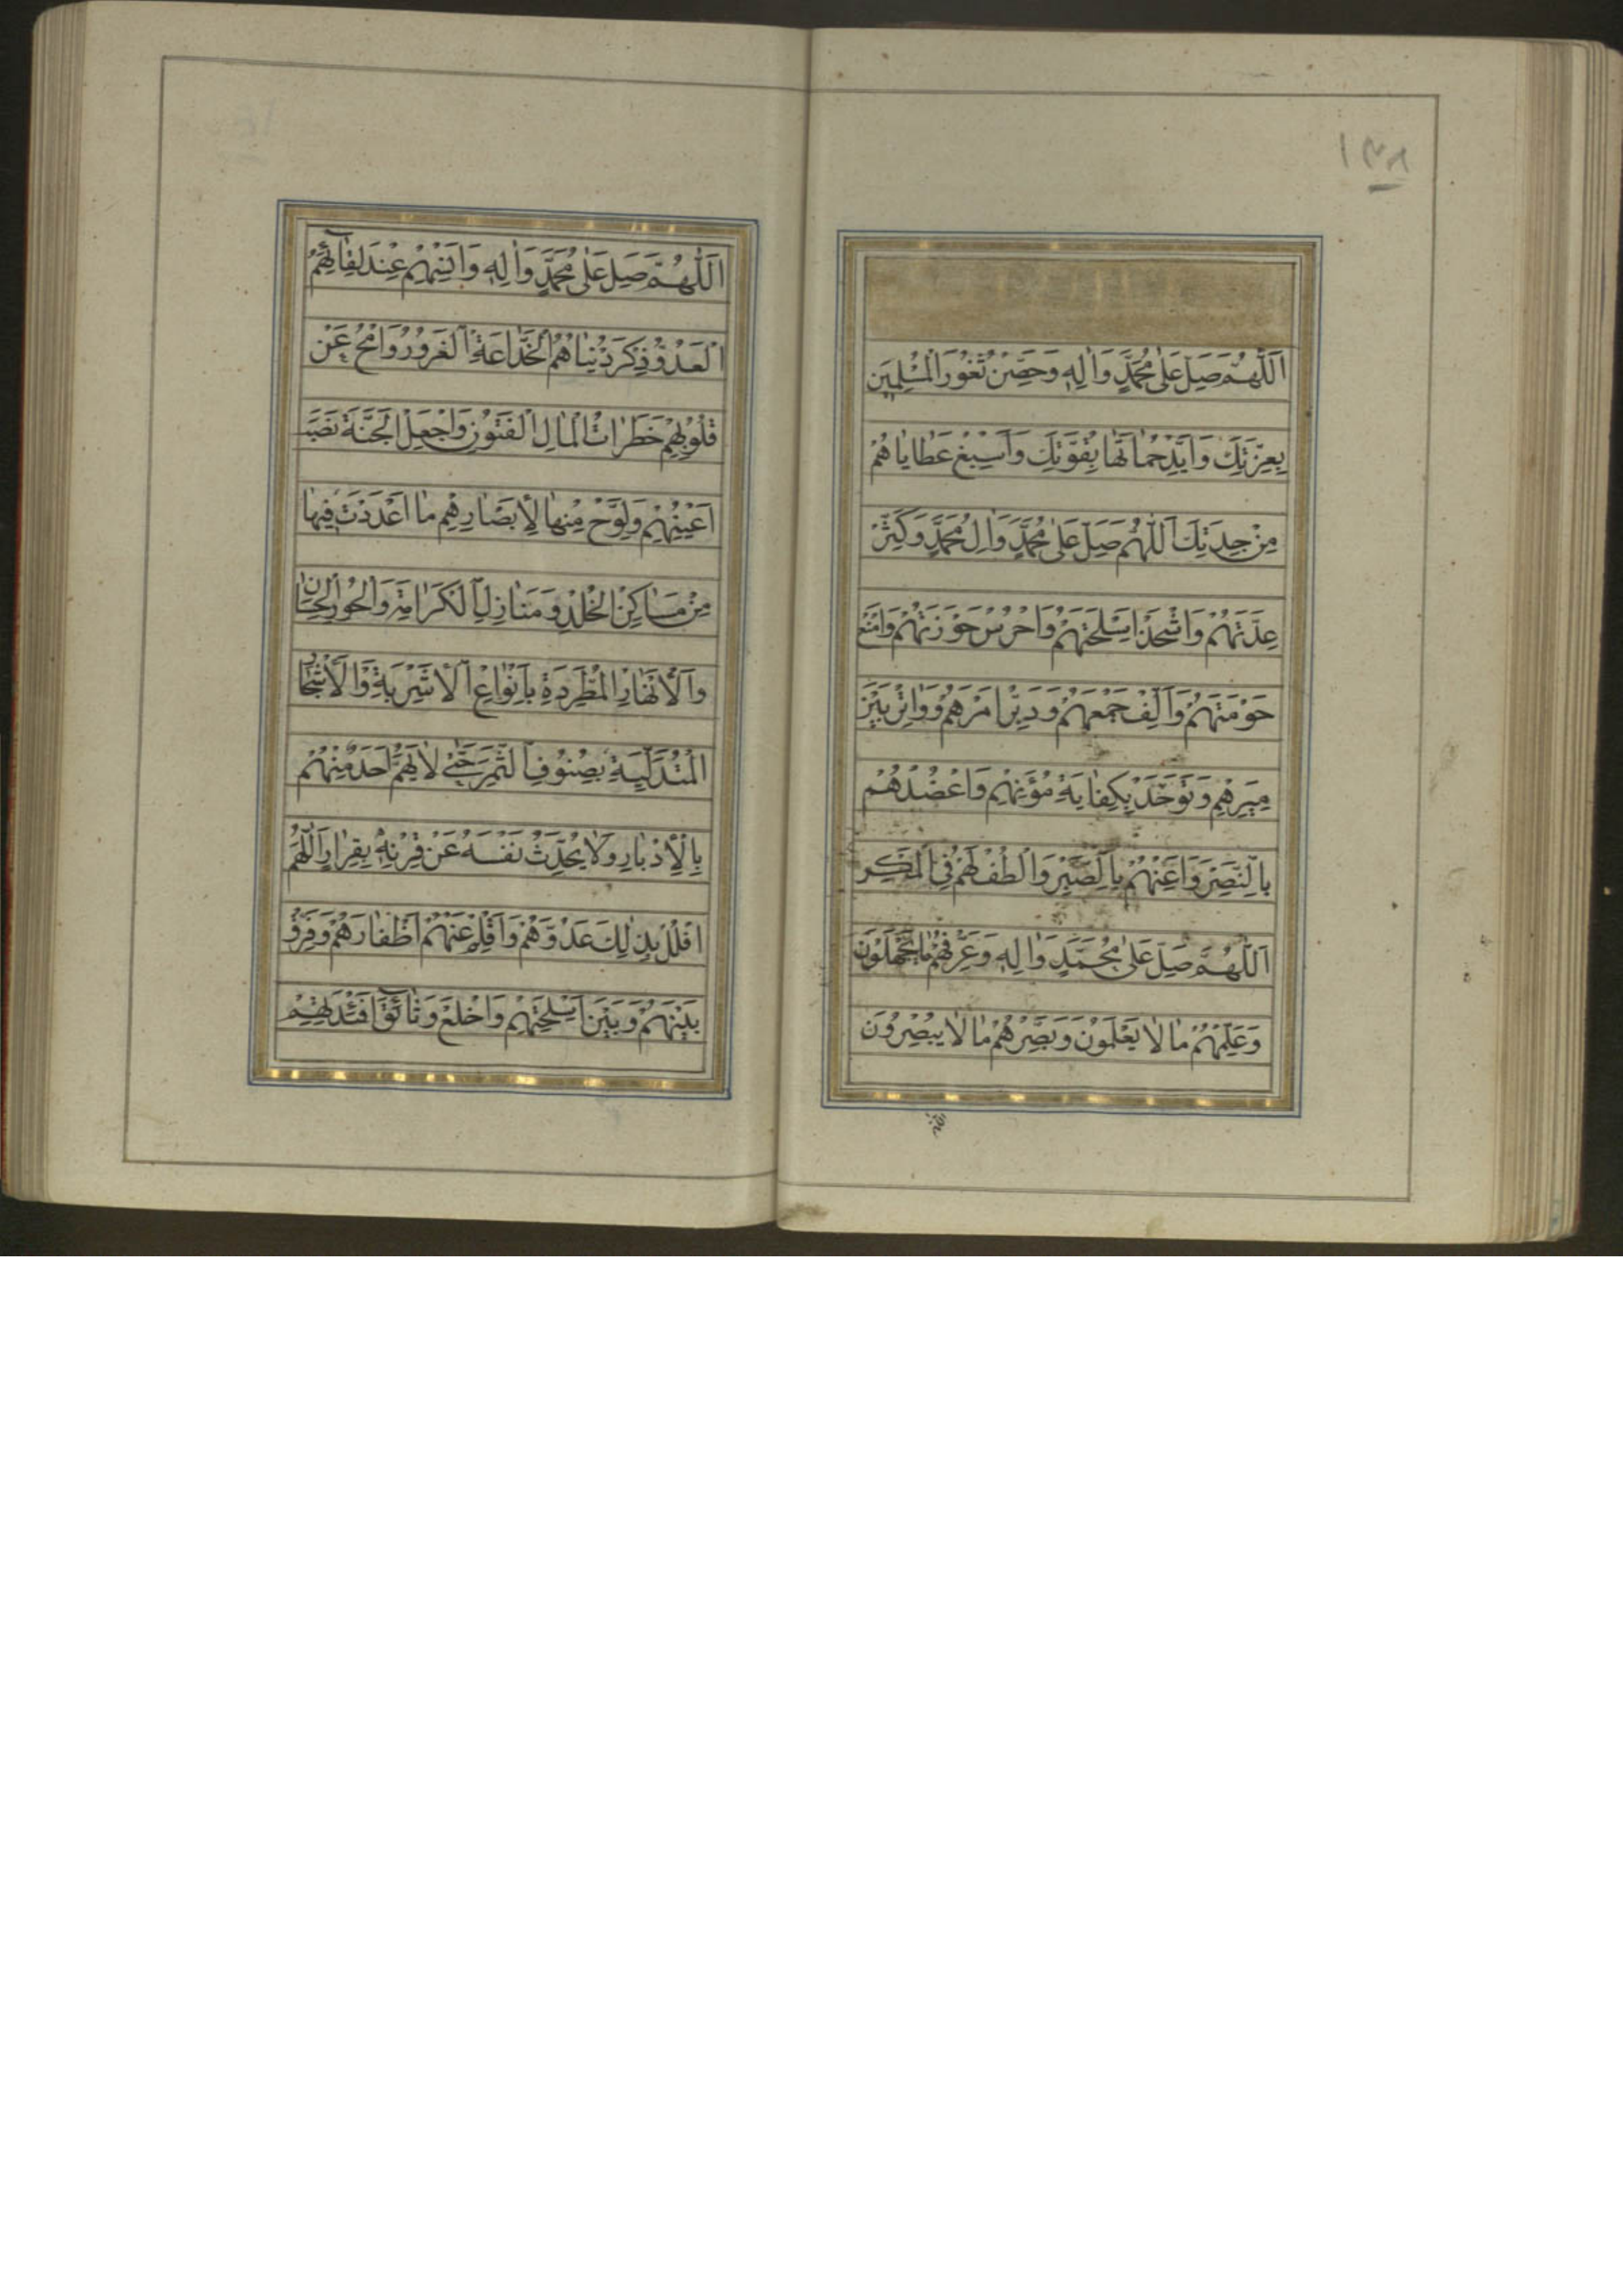 ١٣٨
اَللّٰهُمَّ صَلِّ عَلٰى مُحَمَّدٍ وَاٰلِهِ وَحَصِّنْ ثُغُورَ الْمُسْلِمِينَ
بِعِزَّتِكَ وَاَيِّدْ حُمٰاتَهٰا بِقُوَّتِكَ وَاَسْبِغْ عَطٰايٰاهُمْ
مِنْ جِدَتِكَ اَللّٰهُمَّ صَلِّ عَلٰى مُحَمَّدٍ وَاٰلِ مُحَمَّدٍ وَكَثِّرْ
عِدَّتَهُمْ وَاشْحَذْ اَسْلِحَتَهُمْ وَاحْرُسْ حَوْزَتَهُمْ وَامْنَعْ
حَوْمَتَهُمْ وَاَلِّفْ جَمْعَهُمْ وَدَبِّرْ اَمْرَهُمْ وَوٰاتِرْ بَيْنَ
مِيَرِهِمْ وَتَوَحَّدْ بِكِفٰايَةِ مُؤَنِهِمْ وَاعْضُدْهُمْ
بِالنَّصْرِ وَاَعِنْهُمْ بِالصَّبْرِ وَالْطُفْ لَهُمْ فِى الْمَكْرِ
اَللّٰهُمَّ صَلِّ عَلٰى مُحَمَّدٍ وَاٰلِهِ وَعَرِّفْهُمْ مٰا يَجْهَلُونَ
وَعَلِّمْهُمْ مٰا لٰا يَعْلَمُونَ وَبَصِّرْهُمْ مٰا لٰا يُبْصِرُونَ
اَللّٰهُمَّ صَلِّ عَلٰى مُحَمَّدٍ وَاٰلِهِ وَاَنْسِهِمْ عِنْدَ لِقٰآئِهِمُ
الْعَدُوَّ ذِكْرَ دُنْيٰاهُمُ الْخَدّٰاعَةِ الْغَرُورِ وَامْحُ عَنْ
قُلُوبِهِمْ خَطَرٰاتِ الْمٰالِ الْفَتُونِ وَاجْعَلِ الْجَنَّةَ نَصْبَ
اَعْيُنِهِمْ وَلَوِّحْ مِنْهٰا لِاَبْصٰارِهِمْ مٰا اَعْدَدْتَ فِيهٰا
مِنْ مَسٰاكِنِ الْخُلْدِ وَمَنٰازِلِ الْكَرٰامَةِ وَالْحُورِ الْحِسٰانِ
وَالْاَنْهٰارِ الْمُطَّرِدَةِ بِاَنْوٰاعِ الْاَشْرِبَةِ وَالْاَشْجٰارِ
الْمُتَدَلِّيَةِ بِصُنُوفِ الثَّمَرِ حَتّٰى لٰا يَهُمَّ اَحَدٌ مِنْهُمْ
بِالْاِدْبٰارِ وَلٰا يُحَدِّثَ نَفْسَهُ عَنْ قِرْنِهِ بِفِرٰارٍ اَللّٰهُمَّ
افْلُلْ بِذٰلِكَ عَدُوَّهُمْ وَاَقْلِمْ عَنْهُمْ اَظْفٰارَهُمْ وَفَرِّقْ
بَيْنَهُمْ وَبَيْنَ اَسْلِحَتِهِمْ وَاخْلَعْ وَثٰآئِقَ اَفْئِدَتِهِمْ